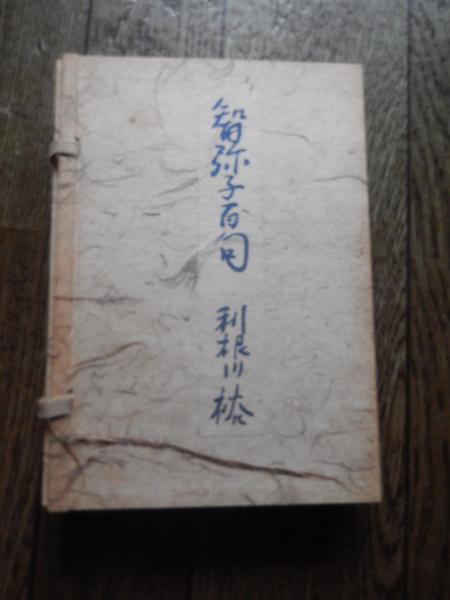 智弥子百句
利根川裕